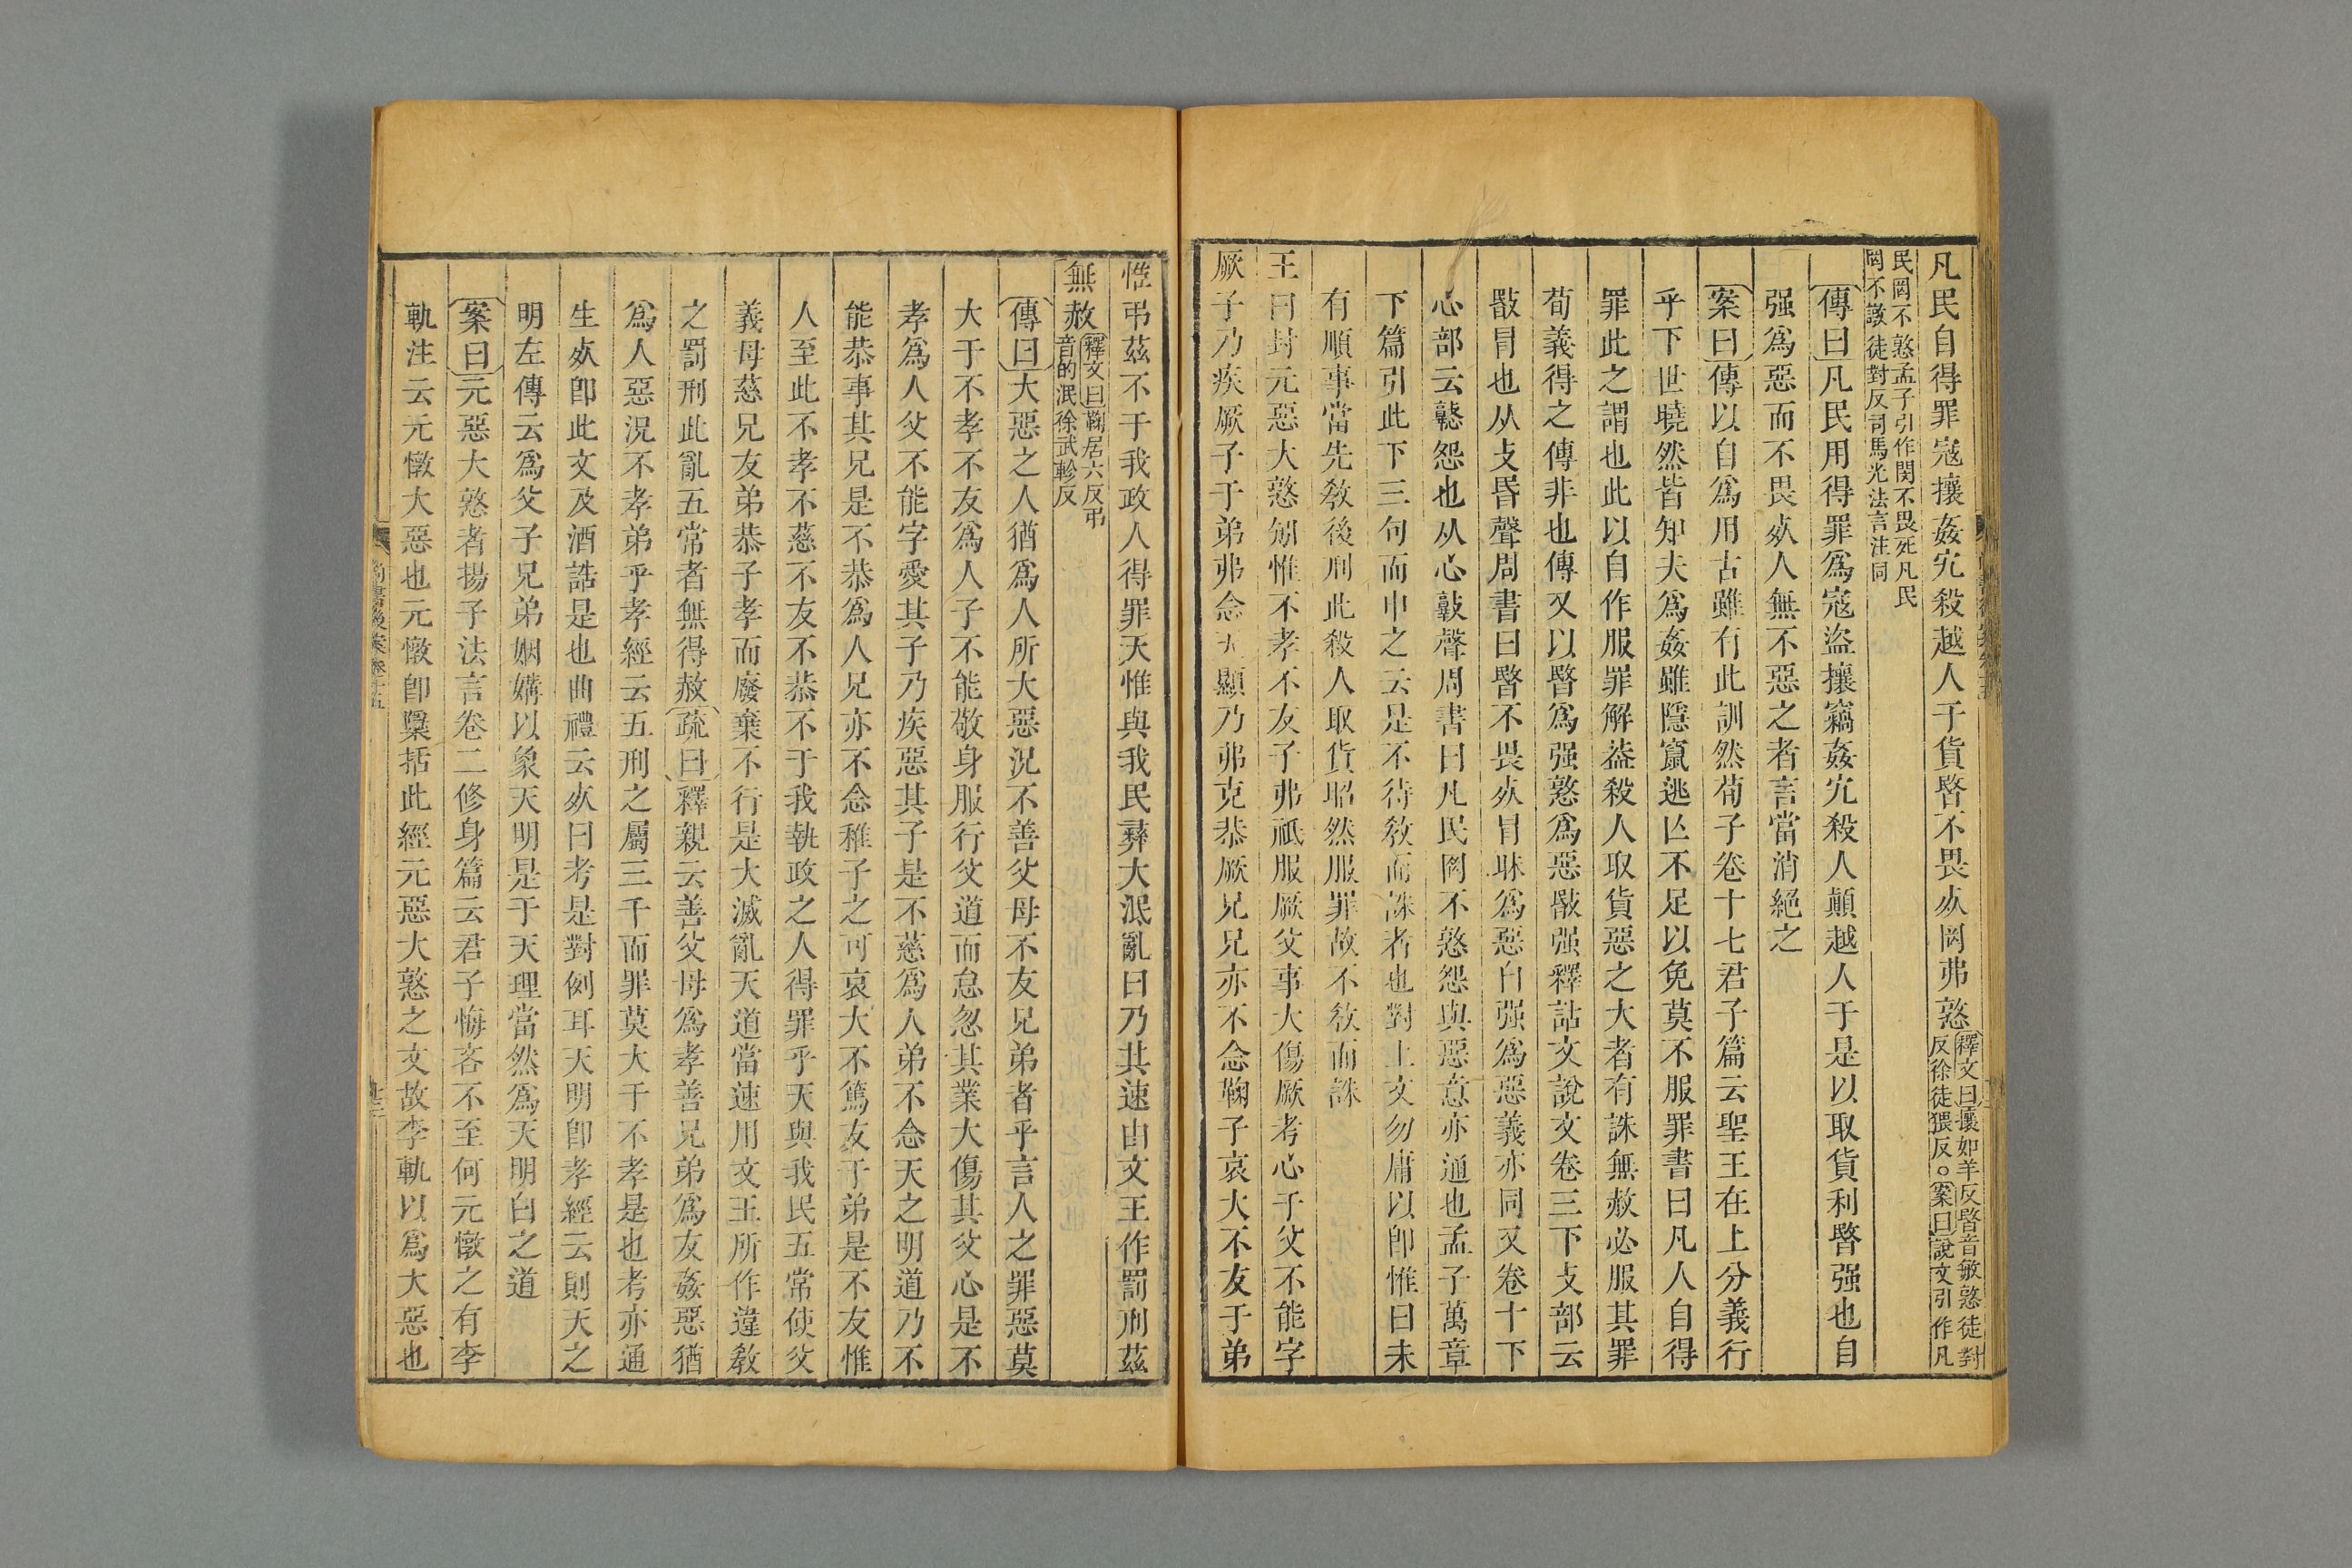 凡民自得罪寇攘姦宄殺越人于貨暋不畏𣦸罔弗憝釋文曰攘如羊反暋音敏憝徒對
反徐徒猥反○案曰說文引作凡
民罔不憝孟子引作閔不畏死凡民
罔不譈徒對反司馬光法言注同
傳曰凡民用得罪爲寇盜攘竊姦宄殺人顚越人于是以取貨利暋强也自
强爲惡而不畏𣦸人無不惡之者言當消絕之
案曰傳以自爲用古雖有此訓然荀子卷十七君子篇云聖王在上分義行
乎下世曉然皆知夫爲姦雖隱竄逃亾不足以免莫不服罪書曰凡人自得
罪此之謂也此以自作服罪解葢殺人取貨惡之大者有誅無赦必服其罪
荀義得之傳非也傳又以暋爲强憝爲惡敯强釋詁文說文卷三下攴部云
敯冒也从攴昬聲周書曰暋不畏𣦸冒昧爲惡自强爲惡義亦同又卷十下
心部云憝怨也从心敦聲周書曰凡民罔不憝怨與惡意亦通也孟子萬章
下篇引此下三句而申之云是不待敎而誅者也對上文勿庸以卽惟曰未
有順事當先敎後刑此殺人取貨昭然服罪故不敎而誅
王曰封元惡大憝矧惟不孝不友子弗祗服厥父事大傷厥考心于父不能字
厥子乃疾厥子于弟弗念天顯乃弗克恭厥兄兄亦不念鞠子哀大不友于弟
惟弔茲不于我政人得罪天惟與我民彝大泯亂曰乃其速由文王作罰刑茲
無赦釋文曰鞠居六反弔
音的泯徐武軫反
傳曰大惡之人猶爲人所大惡況不善父母不友兄弟者乎言人之罪惡莫
大于不孝不友爲人子不能敬身服行父道而怠忽其業大傷其父心是不
孝爲人父不能字愛其子乃疾惡其子是不慈爲人弟不念天之明道乃不
能恭事其兄是不恭爲人兄亦不念稚子之可哀大不篤友于弟是不友惟
人至此不孝不慈不友不恭不于我執政之人得罪乎天與我民五常使父
義母慈兄友弟恭子孝而廢棄不行是大滅亂天道當速用文王所作違敎
之罰刑此亂五常者無得赦疏曰釋親云善父母爲孝善兄弟爲友姦惡猶
爲人惡況不孝弟乎孝經云五刑之屬三千而罪莫大于不孝是也考亦通
生𣦸卽此文及酒誥是也曲禮云𣦸曰考是對例耳天明卽孝經云則天之
明左傳云爲父子兄弟姻媾以象天明是于天理當然爲天明白之道
案曰元惡大憝者揚子法言卷二修身篇云君子悔吝不至何元憞之有李
軌注云元憞大惡也元憞卽檃括此經元惡大憝之文故李軌以爲大惡也
尚書後案卷十五